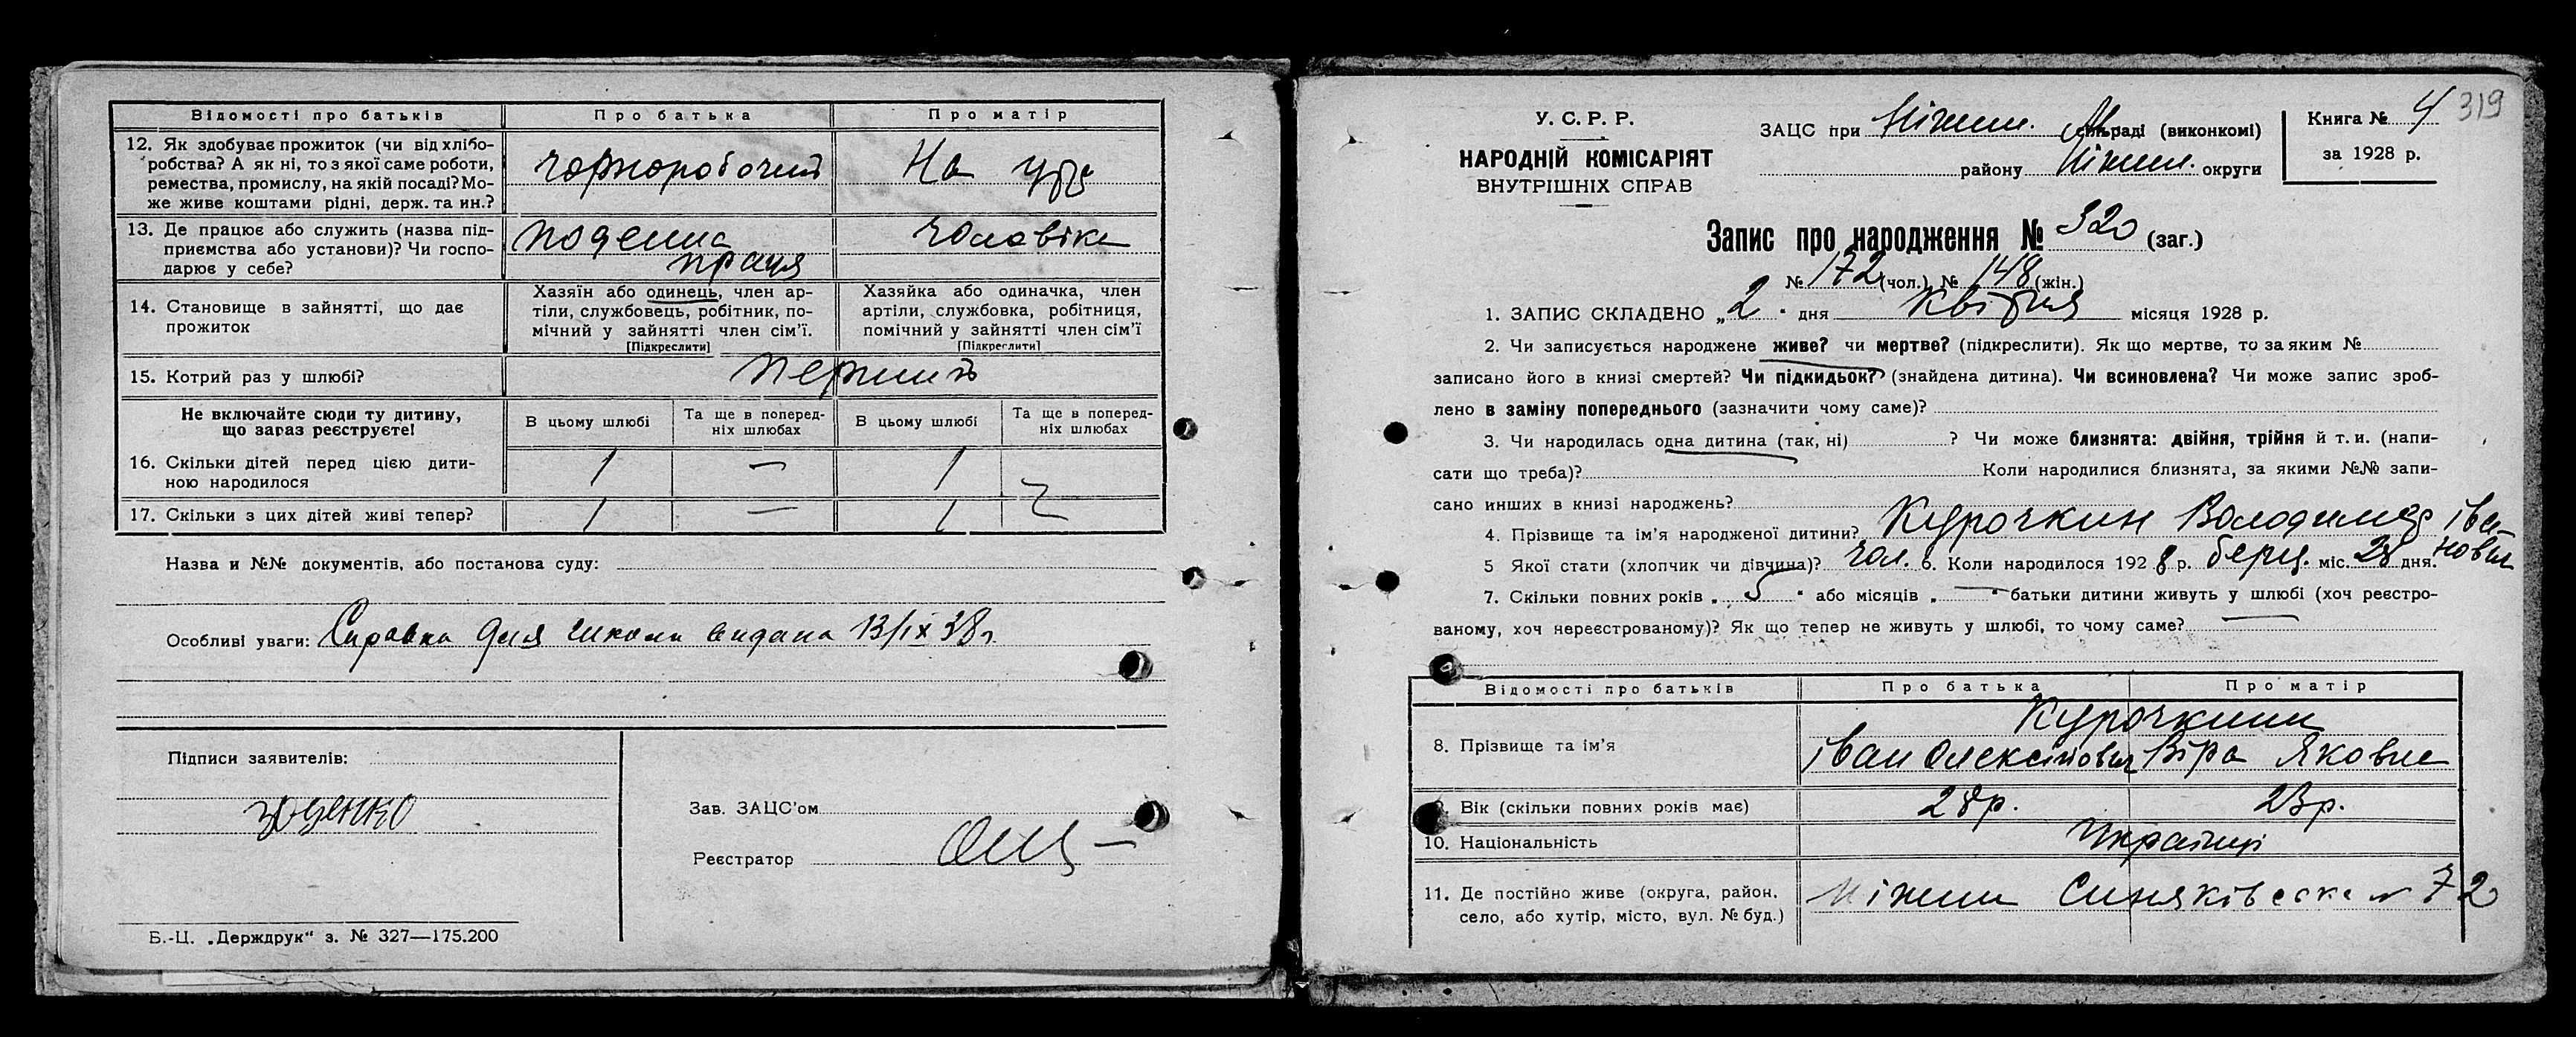 Відомості про батьків
Про батька
Про матір
12. Як здобуває прожиток (чи від хлібо-
робства? А як ні, то з якої саме роботи,
ремества, промислу, на якій посаді? Мо-
же живе коштами рідні, держ. та ин.?
чорноробочий
На утр
13. Де працює або служить (назва під-
приємства або установи)? Чи госпо-
дарює у себе?
поденна
праця
чоловіка
14. Становище в зайнятті, що дає
прожиток
Хазяїн або одинець, член ар-
тіли, службовець, робітник, по-
мічний у зайнятті член сім'ї.
[Підкреслити]
Хазяйка або одиначка, член
артіли, службовка, робітниця,
помічний у зайнятті член сім'ї
[Підкреслити]
15. Котрий раз у шлюбі?
перший
Не включайте сюди ту дитину,
що зараз реєструєте!
В цьому шлюбі
Та ще в поперед-
ніх шлюбах
В цьому шлюбі
Та ще в поперед-
ніх шлюбах
16. Скільки дітей перед цією дити-
ною народилося
1 — 1
17. Скільки з цих дітей живі тепер?
1 — 1
Назва и №№ документів, або постанова суду:
Особливі уваги: Справка для школи видана 13/IX 38 г.
Підписи заявителів:
Зав. ЗАЦС'ом
Реєстратор
Б.-Ц. „Держдрук" з. № 327—175.200
319
У. С. Р. Р.
НАРОДНІЙ КОМІСАРІЯТ
ВНУТРІШНІХ СПРАВ
ЗАЦС при Ніжин. сільраді (виконкомі)
району Ніжин. округи
Книга № 4
за 1928 р.
Запис про народження № 320 (заг.)
№ 172 (чол.) № 148 (жін.)
1. ЗАПИС СКЛАДЕНО „2" дня квітня місяця 1928 р.
2. Чи записується народжене живе? чи мертве? (підкреслити). Як що мертве, то за яким №
записано його в книзі смертей? Чи підкидьок? (знайдена дитина). Чи всиновлена? Чи може запис зроб-
лено в заміну попереднього (зазначити чому саме)?
3. Чи народилась одна дитина (так, ні) ? Чи може близнята: двійня, трійня й т. и. (напи-
сати що треба)? Коли народилися близнята, за якими №№ запи-
сано инших в книзі народжень?
4. Прізвище та ім'я народженої дитини? Курочкин Володимир Іва-
нович
5 Якої стати (хлопчик чи дівчина)? чол. 6. Коли народилося 1928 р. берц. міс. 28 дня.
7. Скільки повних років „ 5 " або місяців „ — " батьки дитини живуть у шлюбі (хоч реєстро-
ваному, хоч нереєстрованому)? Як що тепер не живуть у шлюбі, то чому саме? —
Відомості про батьків
Про батька
Про матір
8. Прізвище та ім'я
Курочкини
Іван Олексійович Віра Яковна
9. Вік (скільки повних років має)
28 р. 23 р.
10. Національність
Українці
11. Де постійно живе (округа, район,
село, або хутір, місто, вул. № буд.)
Ніжин Синяківська № 72